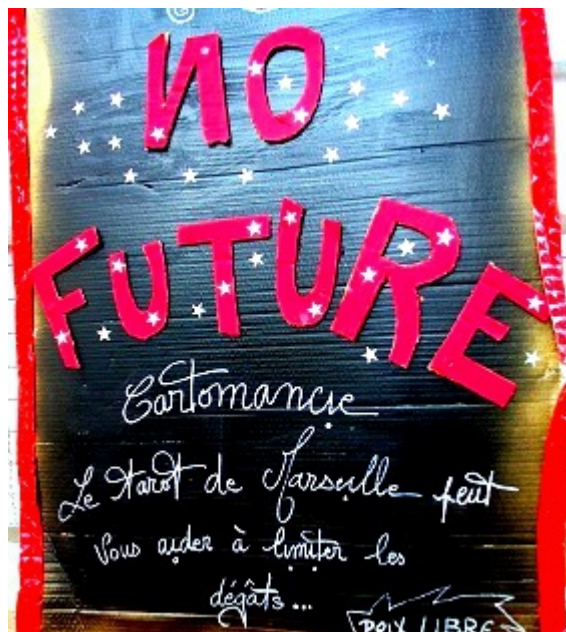 NO
FUTURE
Cartomancie
Le tarot de Marseille peut
Vous aider à limiter les
dégâts...
PRIX LIBRE